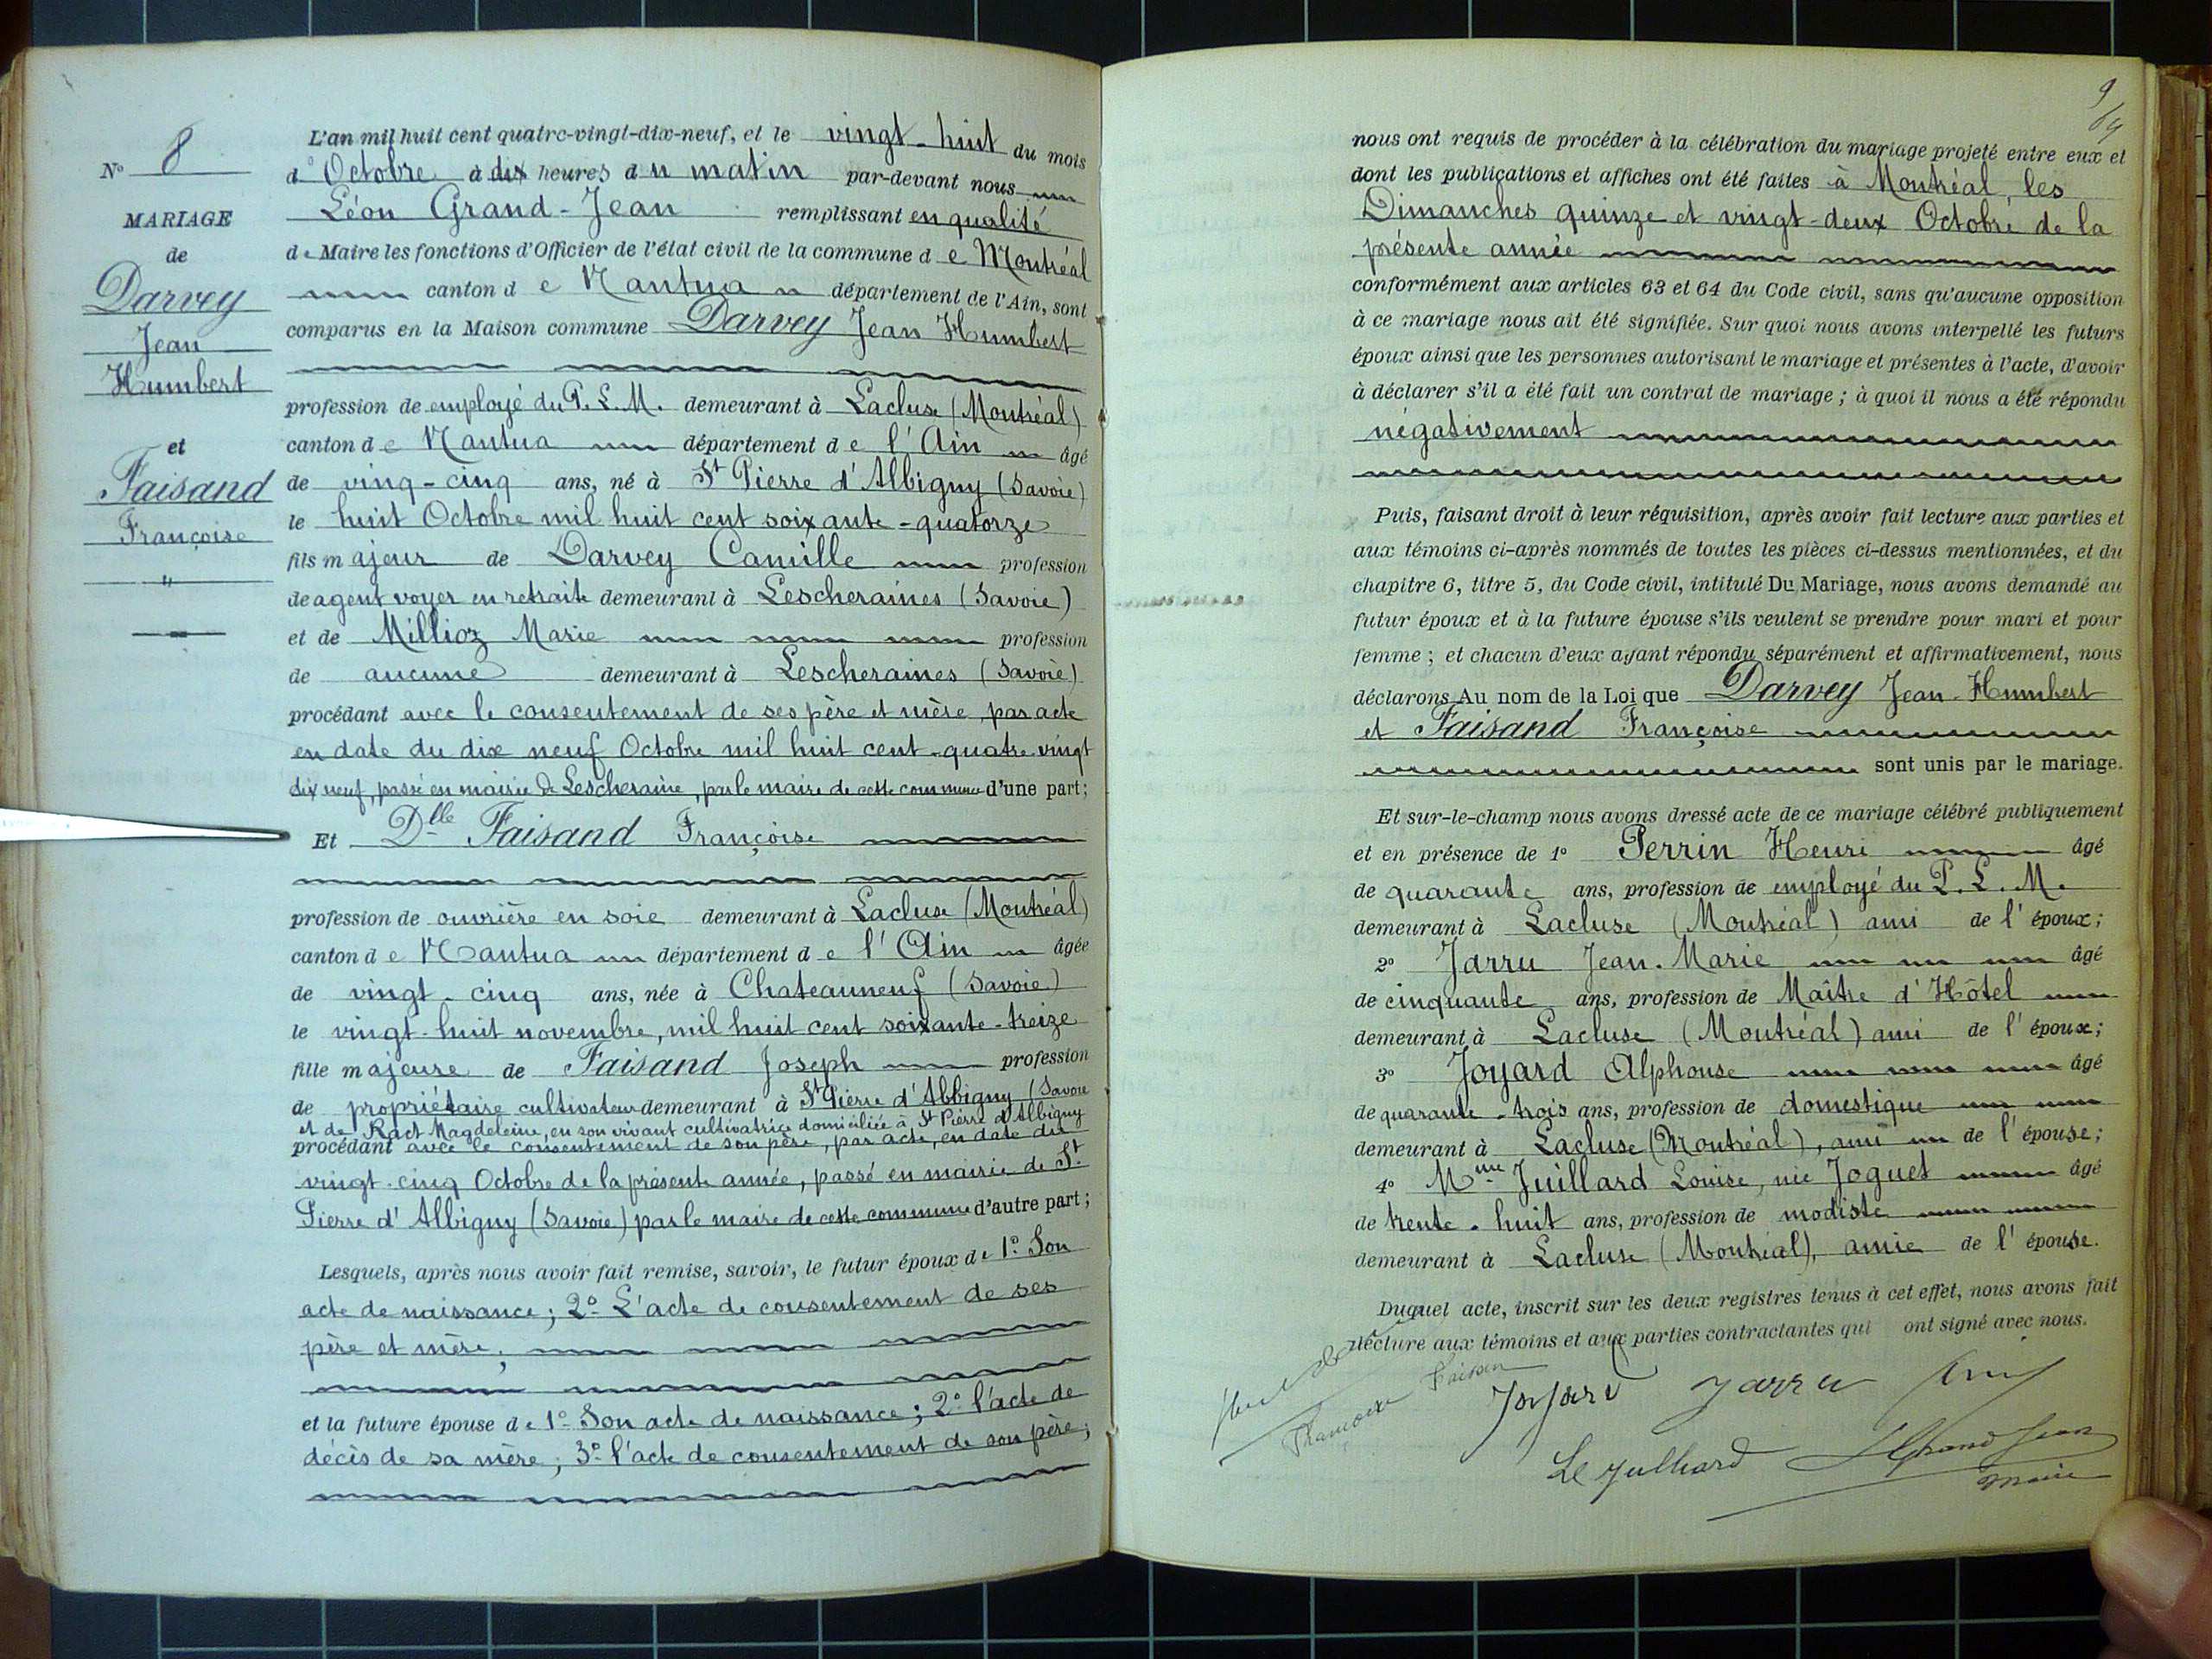 N° 8
MARIAGE
de
Darvey
Jean
Humbert
et
Faisand
Françoise
"
L'an mil huit cent quatre-vingt-dix-neuf, et le vingt-huit du mois
d'Octobre à dix heures du matin par-devant nous
Léon Grand-Jean remplissant en qualité
de Maire les fonctions d'Officier de l'état civil de la commune de Montréal
canton de Nantua département de l'Ain, sont
comparus en la Maison commune Darvey Jean Humbert
profession de employé du P.L.M. demeurant à Lacluse (Montréal)
canton de Nantua département de l'Ain âgé
de ving-cinq ans, né à St Pierre d'Albigny (Savoie)
le huit Octobre mil huit cent soixante-quatorze
fils majeur de Darvey Camille profession
de agent voyer en retraite demeurant à Lescheraines (Savoie)
et de Millioz Marie profession
de aucune demeurant à Lescheraines (Savoie)
procédant avec le consentement de ses père et mère, par acte
en date du dix neuf Octobre mil huit cent-quatre vingt
dix neuf, passé en mairie de Lescheraine, par le maire de cette commune d'une part;
Et Dlle Faisand Françoise
profession de ouvrière en soie demeurant à Lacluse (Montréal)
canton de Nantua département de l'Ain âgée
de vingt-cinq ans, née à Chateauneuf (Savoie)
le vingt-huit novembre, mil huit cent soixante-treize
fille majeure de Faisand Joseph profession
de propriétaire cultivateur demeurant à St Pierre d'Albigny (Savoie
et de Ract Magdeleine, en son vivant cultivatrice domiciliée à St Pierre d'Albigny
procédant avec le consentement de son père, par acte, en date du
vingt-cinq Octobre de la présente année, passé en mairie de St
Pierre d'Albigny (Savoie) par le maire de cette commune d'autre part;
Lesquels, après nous avoir fait remise, savoir, le futur époux de 1° Son
acte de naissance; 2° L'acte de consentement de ses
père et mère;
et la future épouse de 1° Son acte de naissance; 2° l'acte de
décès de sa mère; 3° l'acte de consentement de son père;
9
nous ont requis de procéder à la célébration du mariage projeté entre eux et
dont les publications et affiches ont été faites à Montréal, les
Dimanches quinze et vingt-deux Octobre de la
présente année
conformément aux articles 63 et 64 du Code civil, sans qu'aucune opposition
à ce mariage nous ait été signifiée. Sur quoi nous avons interpellé les futurs
époux ainsi que les personnes autorisant le mariage et présentes à l'acte, d'avoir
à déclarer s'il a été fait un contrat de mariage; à quoi il nous a été répondu
négativement
Puis, faisant droit à leur réquisition, après avoir fait lecture aux parties et
aux témoins ci-après nommés de toutes les pièces ci-dessus mentionnées, et du
chapitre 6, titre 5, du Code civil, intitulé Du Mariage, nous avons demandé au
futur époux et à la future épouse s'ils veulent se prendre pour mari et pour
femme; et chacun d'eux ayant répondu séparément et affirmativement, nous
déclarons Au nom de la Loi que Darvey Jean-Humbert
et Faisand Françoise
sont unis par le mariage.
Et sur-le-champ nous avons dressé acte de ce mariage célébré publiquement
et en présence de 1° Perrin Henri âgé
de quarante ans, profession de employé du P.L.M.
demeurant à Lacluse (Montréal) ami de l'époux;
2° Jarru Jean-Marie âgé
de cinquante ans, profession de Maître d'Hôtel
demeurant à Lacluse (Montréal) ami de l'époux;
3° Joyard Alphonse âgé
de quarante-trois ans, profession de domestique
demeurant à Lacluse (Montréal), ami de l'épouse;
4° Mme Juillard Louise, née Joguet âgé
de trente-huit ans, profession de modiste
demeurant à Lacluse (Montréal), amie de l'épouse.
Duquel acte, inscrit sur les deux registres tenus à cet effet, nous avons fait
lecture aux témoins et aux parties contractantes qui ont signé avec nous.
Joyard Jarru
LGrand Jean
maire